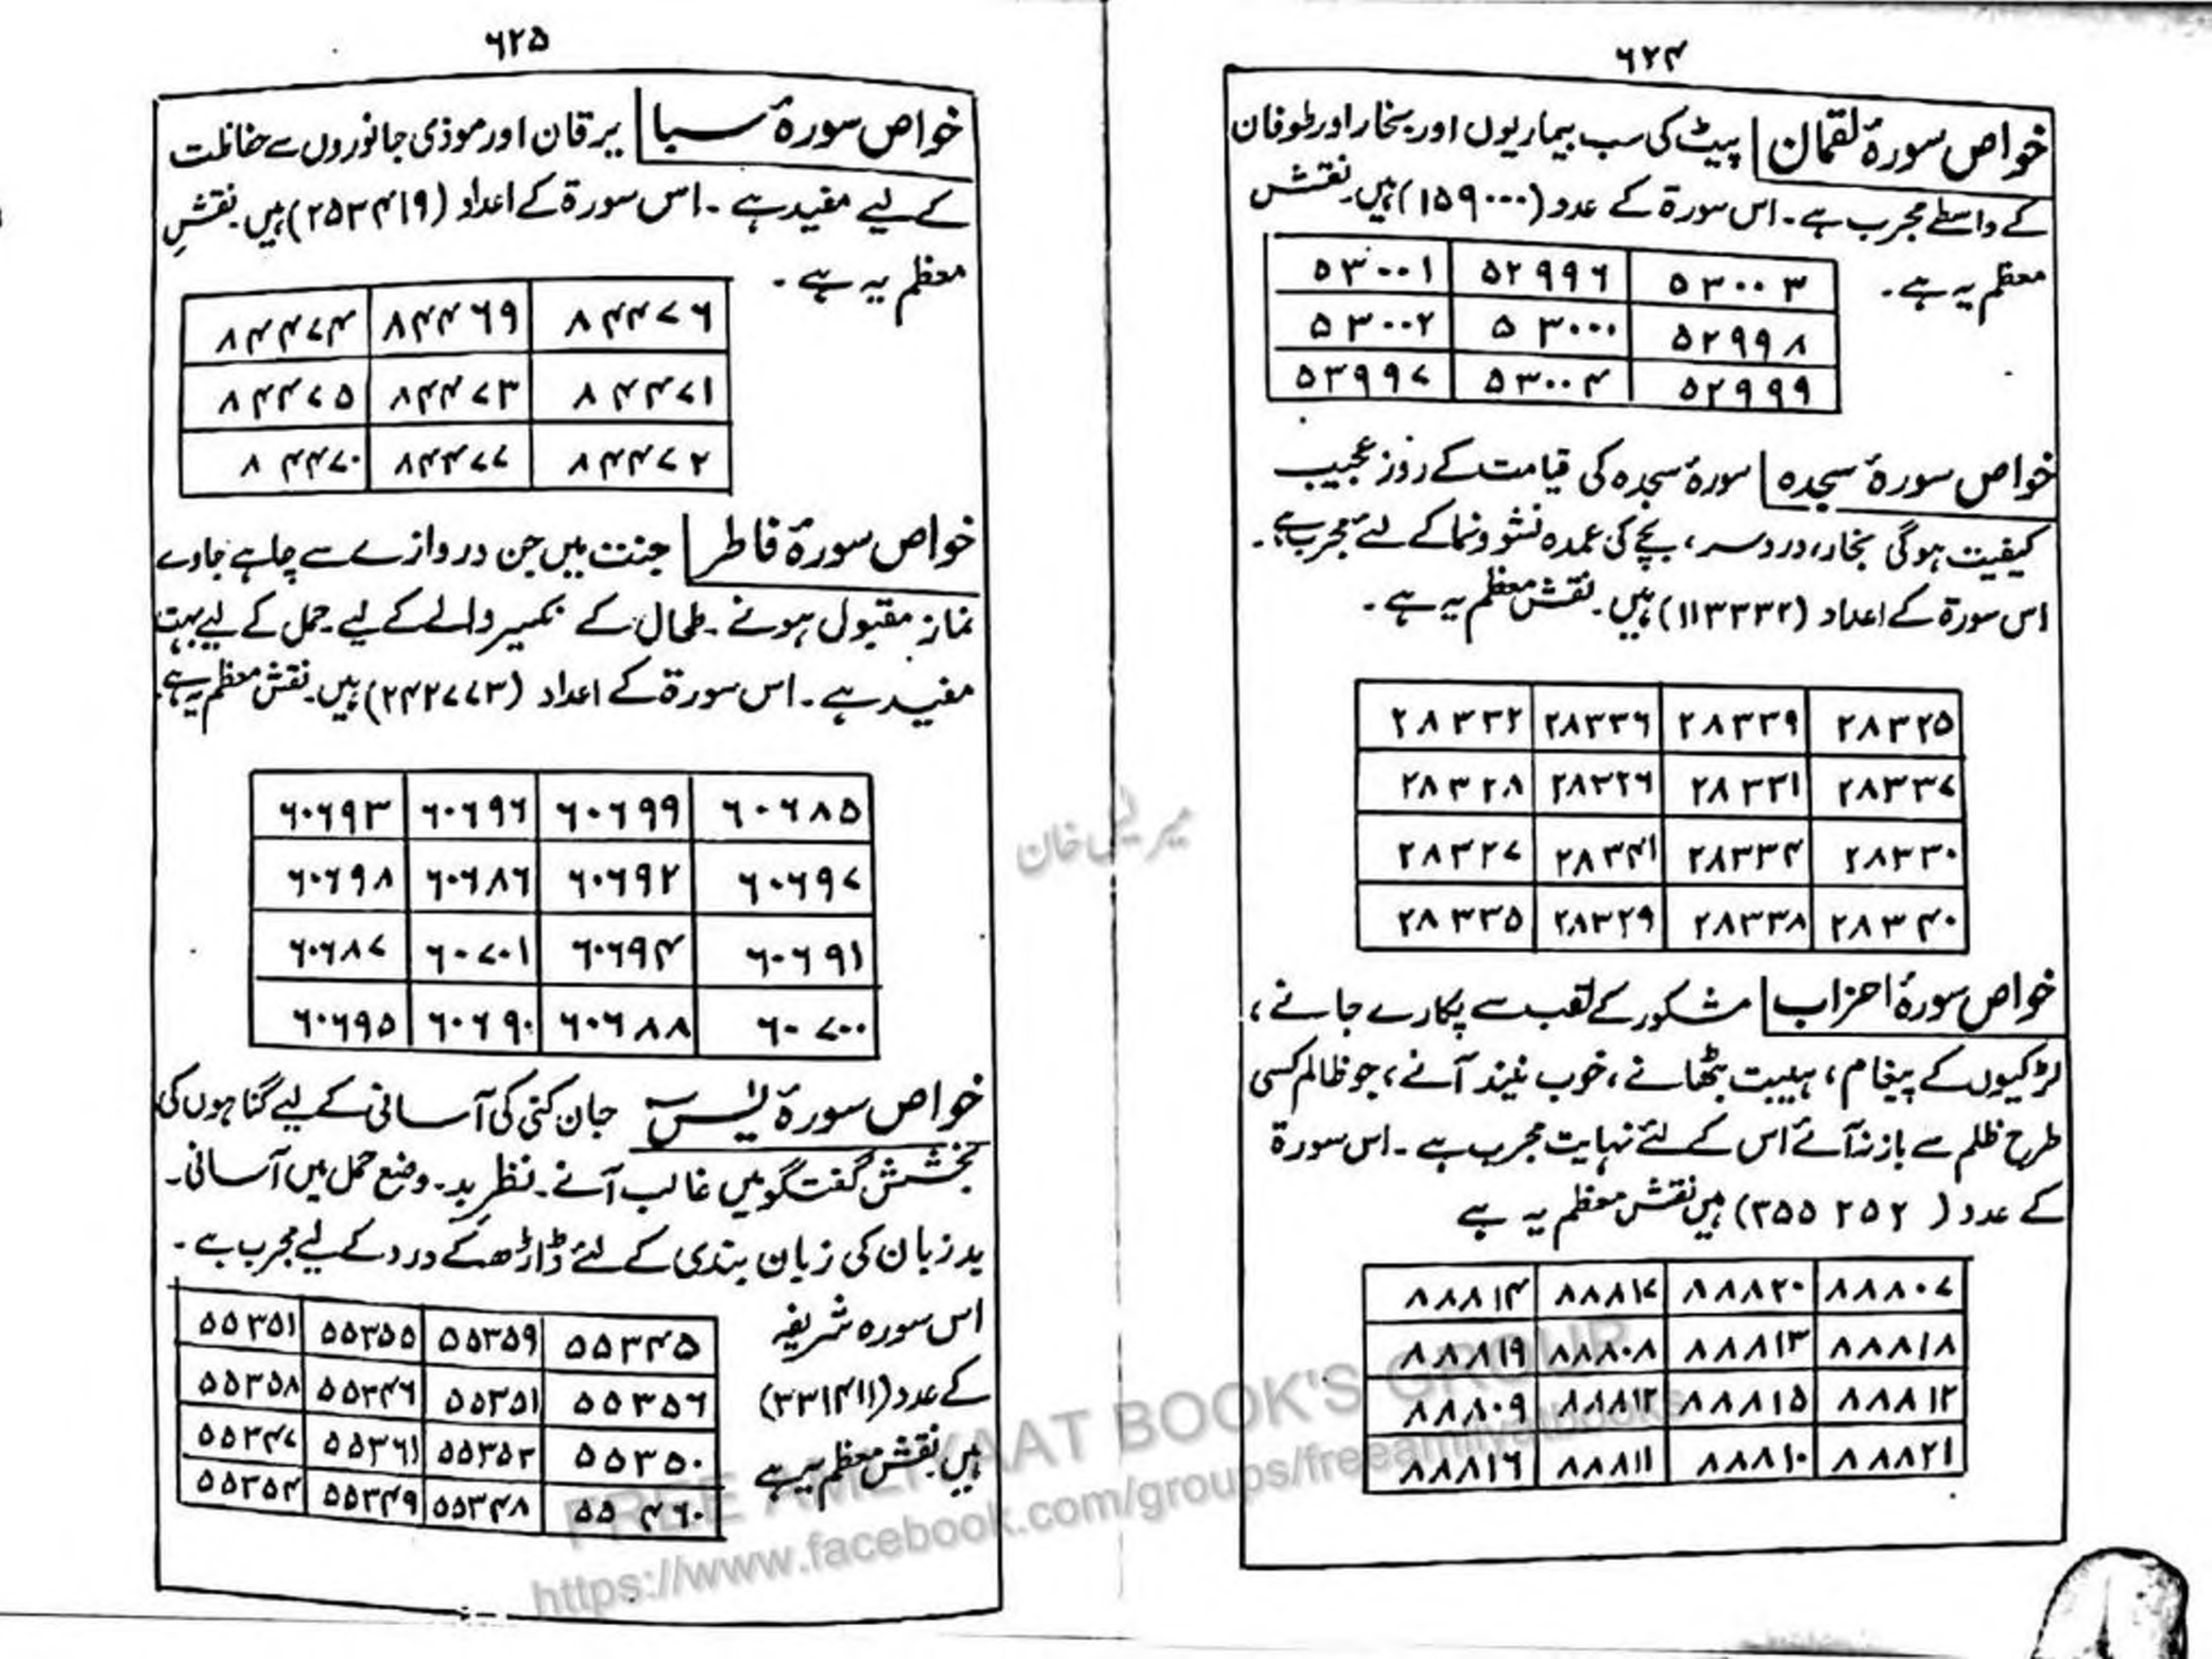 ۶۲۴
خواص سورۂ لقمان پیٹ کی سب بیماریوں اور بخار اور طوفان
کے واسطے مجرب ہے۔ اس سورۃ کے عدد (۱۵۹۰۰۰) ہیں۔ نقشش
معظم یہ ہے۔
۵۳۰۰۳ ۵۲۹۹۶ ۵۳۰۰۱
۵۲۹۹۸ ۵۳۰۰۰ ۵۳۰۰۲
۵۲۹۹۹ ۵۳۰۰۴ ۵۳۹۹۷
خواص سورۂ سجدہ سورۂ سجدہ کی قیامت کے روز عجیب
کیفیت ہوگی بخار، درد سر، بچے کی عمدہ نشوونما کے لئے مجرب ہے۔
اس سورۃ کے اعداد (۱۱۳۳۳۲) ہیں۔ نقش معظم یہ ہے۔
۲۸۳۲۵ ۲۸۳۳۹ ۲۸۳۳۶ ۲۸۳۳۲
۲۸۳۳۷ ۲۸۳۳۱ ۲۸۳۲۶ ۲۸۳۲۸
۲۸۳۳۰ ۲۸۳۳۴ ۲۸۳۴۱ ۲۸۳۲۷
۲۸۳۴۰ ۲۸۳۳۸ ۲۸۳۲۹ ۲۸۳۳۵
خواص سورۂ احزاب مشکور کے لقب سے پکارے جانے،
لڑکیوں کے پیغام، ہیبت بٹھانے، خوب نیند آنے، جو ظالم کسی
طرح ظلم سے باز نہ آئے اس کے لئے نہایت مجرب ہے۔ اس سورۃ
کے عدد (۳۵۵۲۵۲) ہیں نقش معظم یہ ہے
۸۸۸۰۷ ۸۸۸۲۰ ۸۸۸۱۷ ۸۸۸۱۴
۸۸۸۱۸ ۸۸۸۱۳ ۸۸۸۰۸ ۸۸۸۱۹
۸۸۸۱۲ ۸۸۸۱۵ ۸۸۸۱۲ ۸۸۸۰۹
۸۸۸۲۱ ۸۸۸۱۰ ۸۸۸۱۱ ۸۸۸۱۶
۶۲۵
خواص سورۂ سبا یرقان اور موذی جانوروں سے حفاظت
کے لیے مفید ہے۔ اس سورۃ کے اعداد (۲۵۳۴۱۹) ہیں۔ نقشِ
معظم یہ ہے۔
۸۴۴۷۶ ۸۴۴۶۹ ۸۴۴۷۴
۸۴۴۷۱ ۸۴۴۷۳ ۸۴۴۷۵
۸۴۴۷۲ ۸۴۴۷۷ ۸۴۴۷۰
خواص سورۂ فاطر جنت میں جن دروازے سے چاہے جاوے
نماز مقبول ہونے۔ طحال کے نکسیر والے کے لیے حمل کے لیے بہت
مفید ہے۔ اس سورۃ کے اعداد (۲۴۲۷۷۳) ہیں۔ نقش معظم یہ ہے
۶۰۶۸۵ ۶۰۶۹۹ ۶۰۶۹۶ ۶۰۶۹۳
۶۰۶۹۷ ۶۰۶۹۲ ۶۰۶۸۶ ۶۰۶۹۸
۶۰۶۹۱ ۶۰۶۹۴ ۶۰۷۰۱ ۶۰۶۸۷
۶۰۷۰۰ ۶۰۶۸۸ ۶۰۶۹۰ ۶۰۶۹۵
خواص سورۂ یٰس جان کنی کی آسانی کے لیے گناہوں کی
بخشش گفتگو میں غالب آنے۔ نظر بد۔ وضع حمل میں آسانی۔
بد زبان کی زبان بندی کے لئے ڈاڑھ کے درد کے لیے مجرب ہے۔
اس سورہ شریفہ
کے عدد (۳۳۱۴۱۱)
ہیں نقش معظم یہ ہے
۵۵۳۴۵ ۵۵۳۵۹ ۵۵۳۵۵ ۵۵۳۵۱
۵۵۳۵۶ ۵۵۳۵۱ ۵۵۳۴۶ ۵۵۳۵۸
۵۵۳۵۰ ۵۵۳۵۳ ۵۵۳۶۱ ۵۵۳۴۷
۵۵۴۶۰ ۵۵۳۴۸ ۵۵۳۴۹ ۵۵۳۵۴
FREE AMLIYAAT BOOK'S GROUP
https://www.facebook.com/groups/freeamliyatbooks